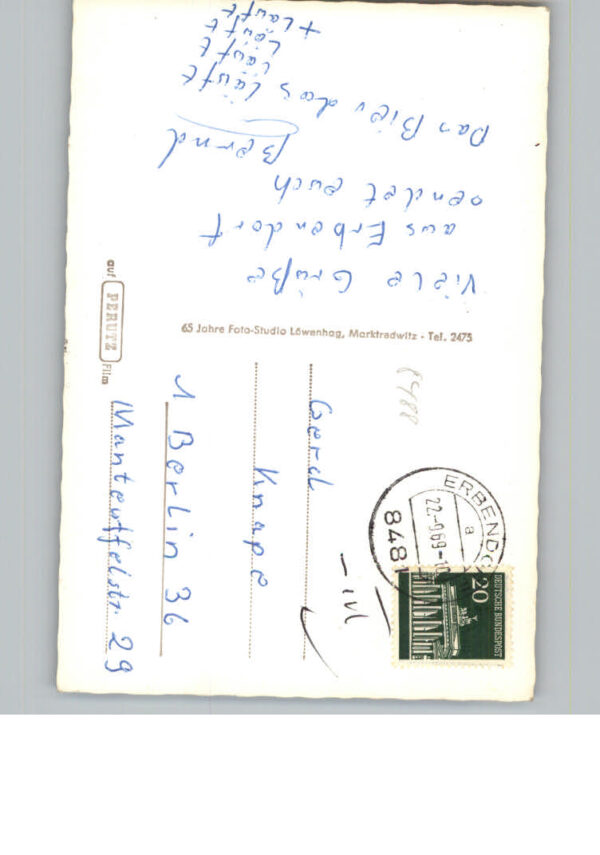 Viele Grüße
aus Erbendorf
sendet euch
Bernd
Das Bier, das läuft
läuft
läuft
+ läuft
65 Jahre Foto-Studio Löwenhag, Marktredwitz - Tel. 2475
auf PERUTZ Film
8488
ERBENDO
22.-9.69-10
a
8481
DEUTSCHE BUNDESPOST
20
Gerd
Knape
1 Berlin 36
Manteuffelstr. 29